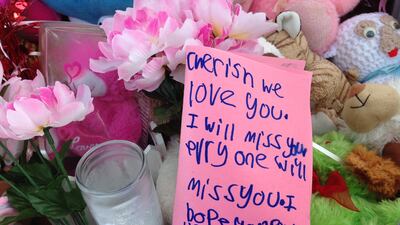 Cherish we
love you.
I will miss you
evry one will
missyou. I